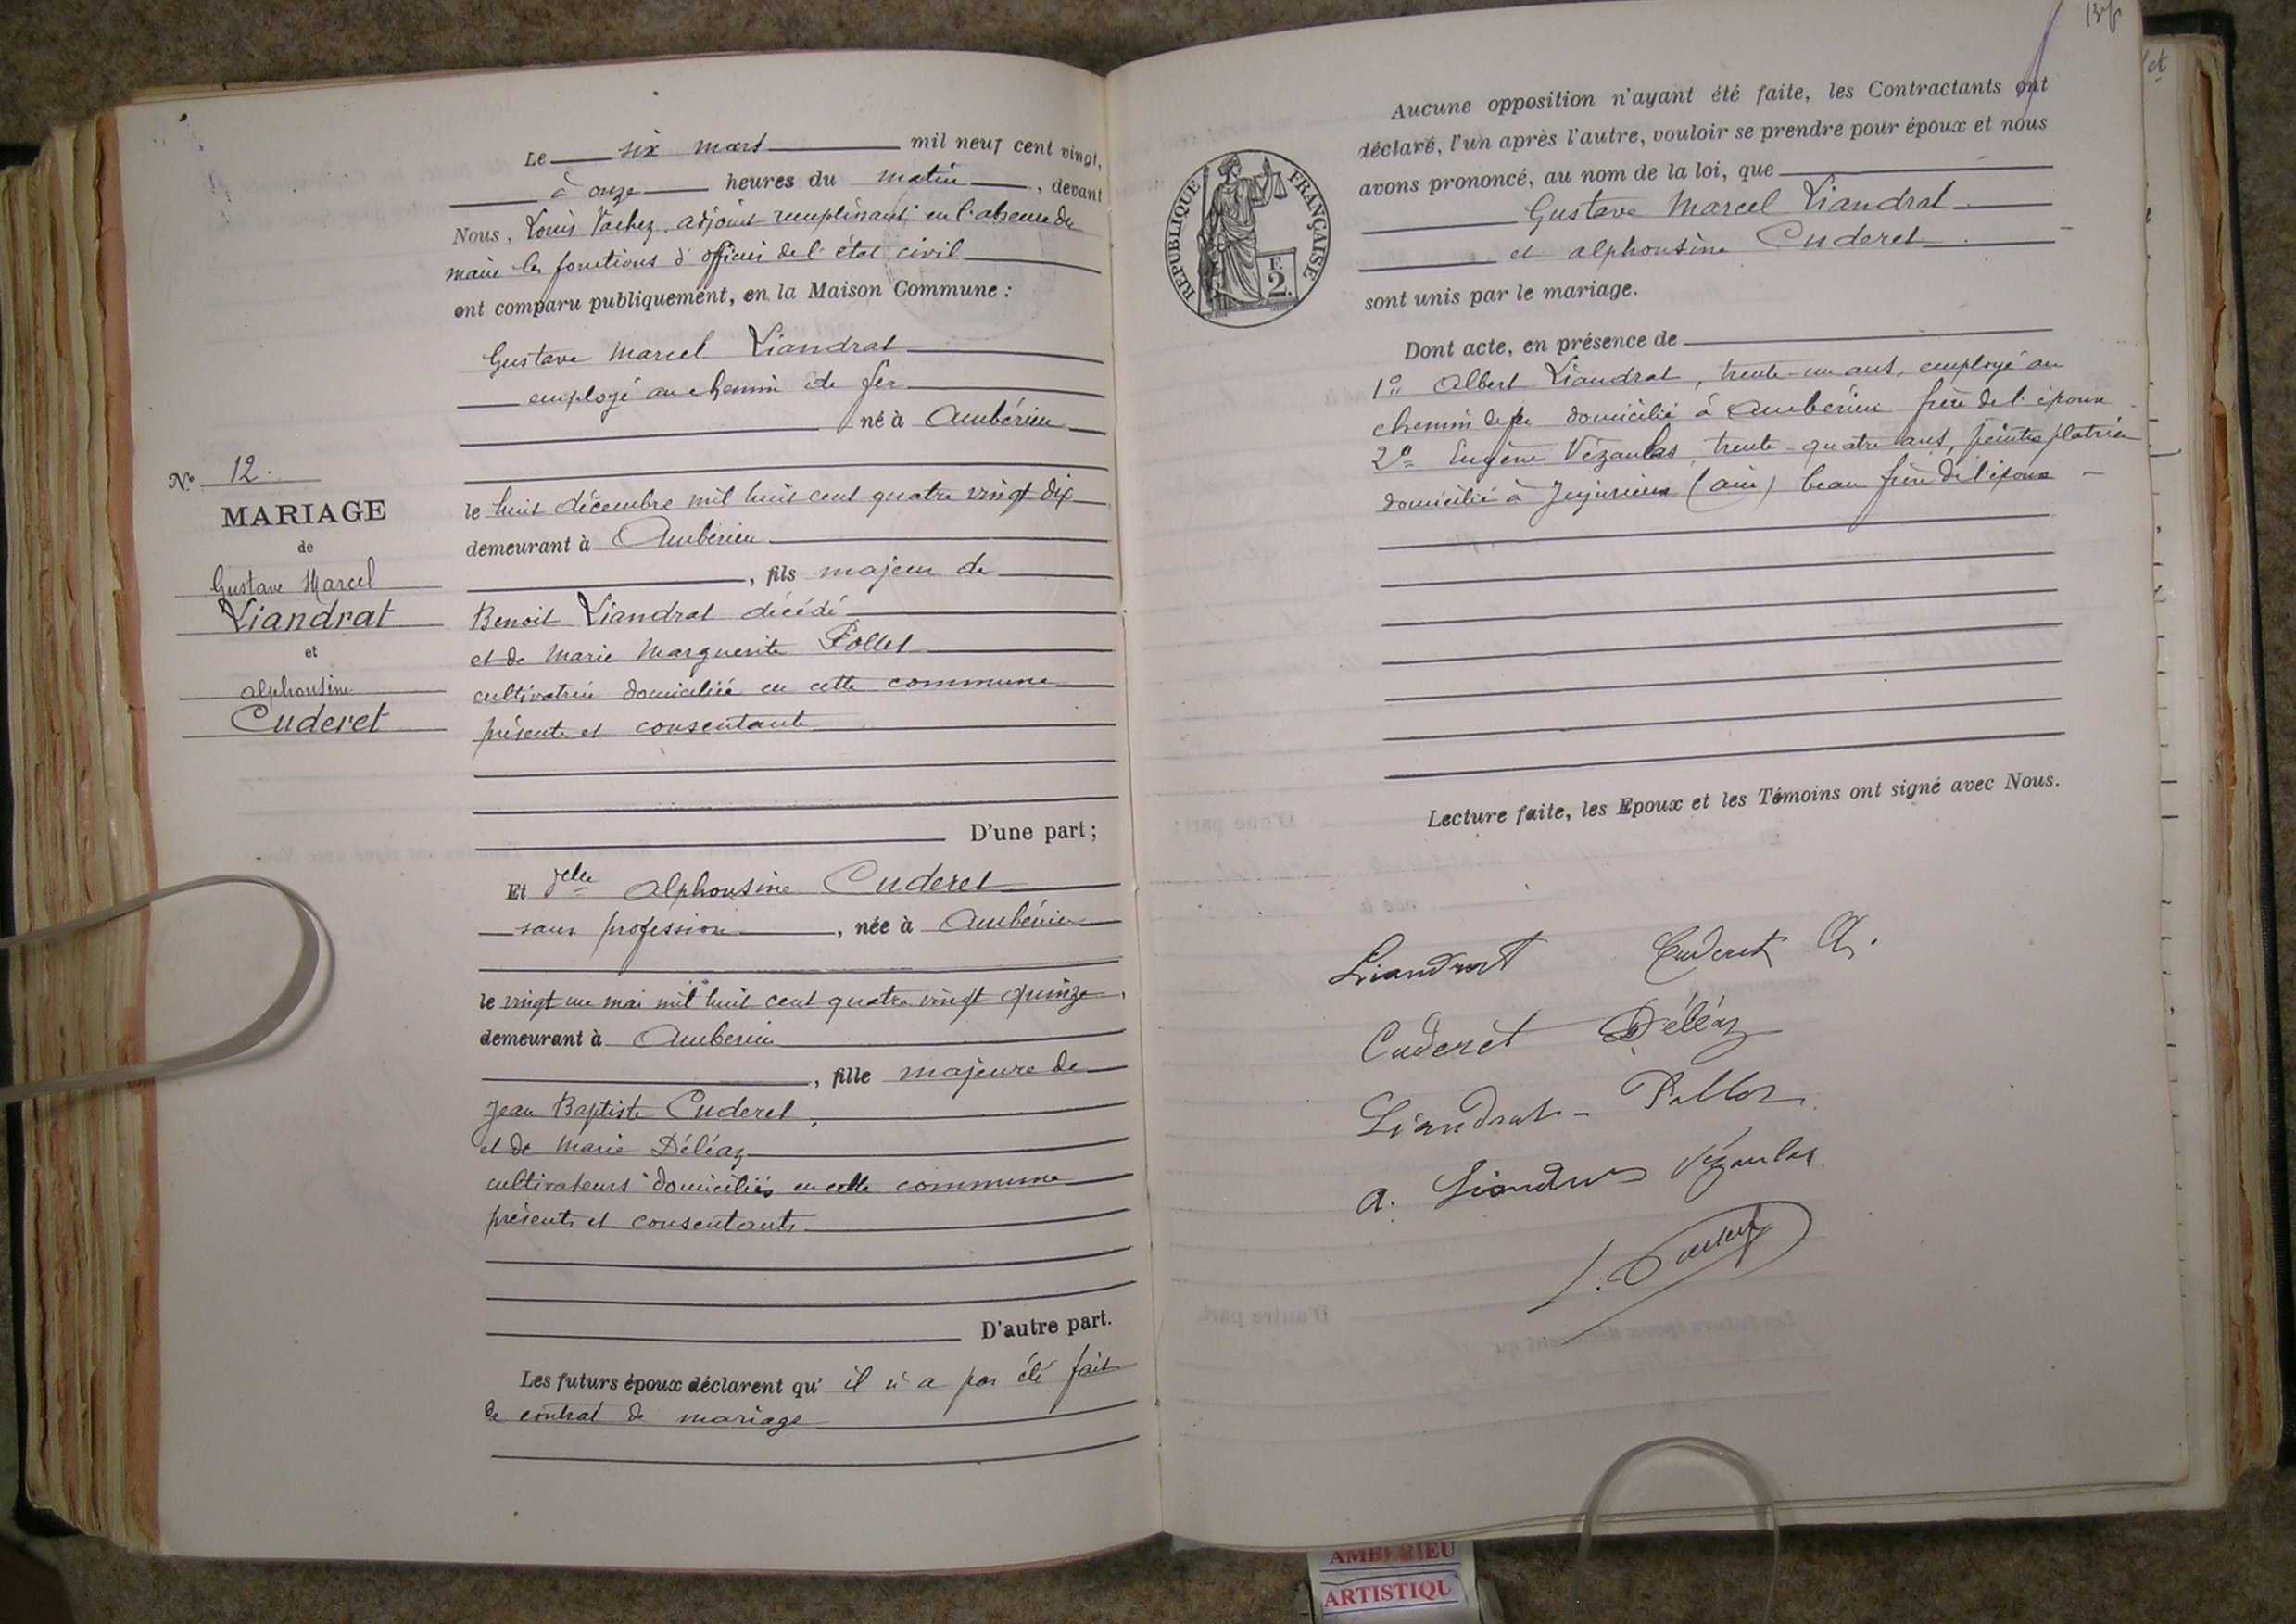 Le six mars mil neuf cent vingt,
à onze heures du matin, devant
Nous, Louis Vachez, adjoint remplissant en l'absence du
maire les fonctions d'officier de l'état civil
ont comparu publiquement, en la Maison Commune :
Gustave Marcel Liandrat
employé au chemin de fer
né à Ambérieu
le huit décembre mil huit cent quatre vingt dix
demeurant à Ambérieu
, fils majeur de
Benoit Liandrat décédé
et de Marie Marguerite Pollet
cultivatrice domiciliée en cette commune
présente et consentante
D'une part ;
Et delle Alphonsine Cuderet
sans profession, née à Ambérieu
le vingt un mai mil huit cent quatre vingt quinze,
demeurant à Ambérieu
, fille majeure de
Jean Baptiste Cuderet,
et de Marie Déléaz
cultivateurs domiciliés en cette commune
présents et consentants
D'autre part.
Les futurs époux déclarent qu'il n'a pas été fait
de contrat de mariage
No 12.
MARIAGE
de
Gustave Marcel
Liandrat
et
Alphonsine
Cuderet
RÉPUBLIQUE FRANÇAISE
F.
2.
Aucune opposition n'ayant été faite, les Contractants ont
déclaré, l'un après l'autre, vouloir se prendre pour époux et nous
avons prononcé, au nom de la loi, que
Gustave Marcel Liandrat
et Alphonsine Cuderet
sont unis par le mariage.
Dont acte, en présence de
1° Albert Liandrat, trente-un ans, employé au
chemin de fer domicilié à Ambérieu frère de l'époux
2° Eugène Vézanlas trente-quatre ans, peintre platrier
domicilié à Jujurieux (Ain) beau frère de l'époux
Lecture faite, les Epoux et les Témoins ont signé avec Nous.
Liandrat Cuderet A.
Cuderet Déléaz
Liandrat - Pollet
A. Liandrat Vézanlas
AMBERIEU
ARTISTIQU